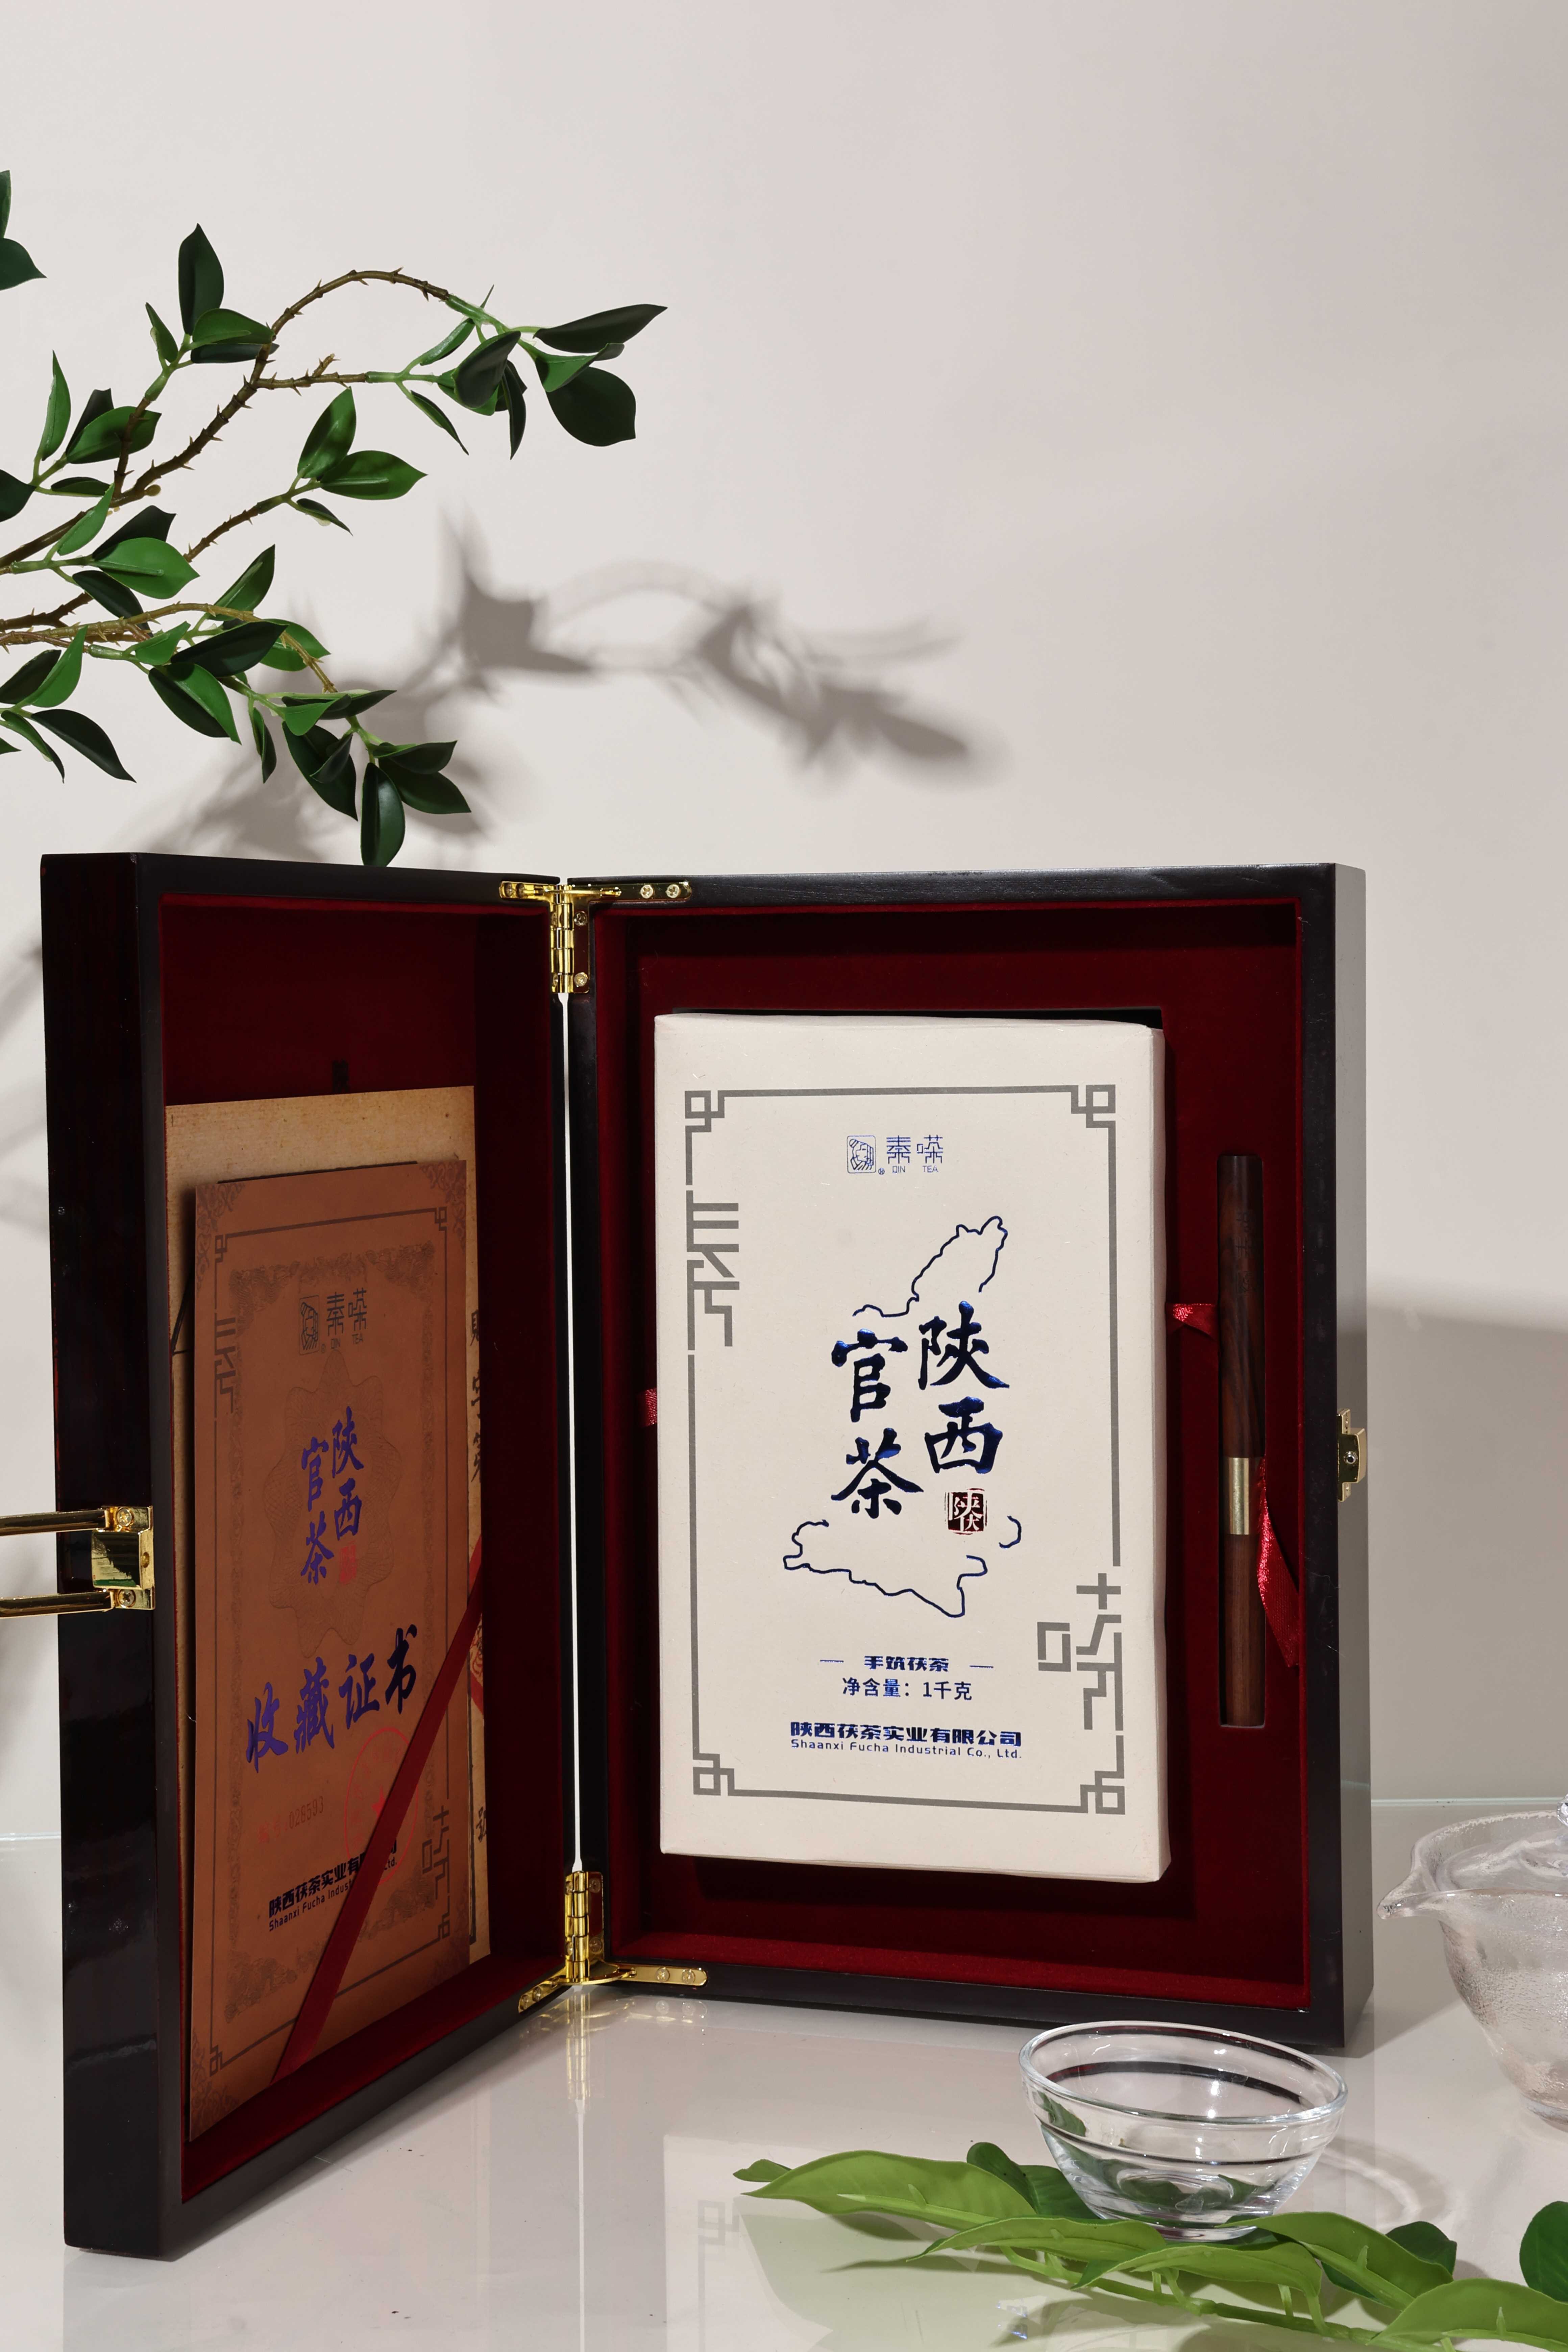 秦嗏
QIN TEA
陕西
官茶
收藏证书
编号:028593
陕西茯茶实业有
Shaanxi Fucha Indust
Ltd.
秦嗏
QIN TEA
陕西
官茶
陕茯
手筑茯茶
净含量：1千克
陕西茯茶实业有限公司
Shaanxi Fucha Industrial Co., Ltd.